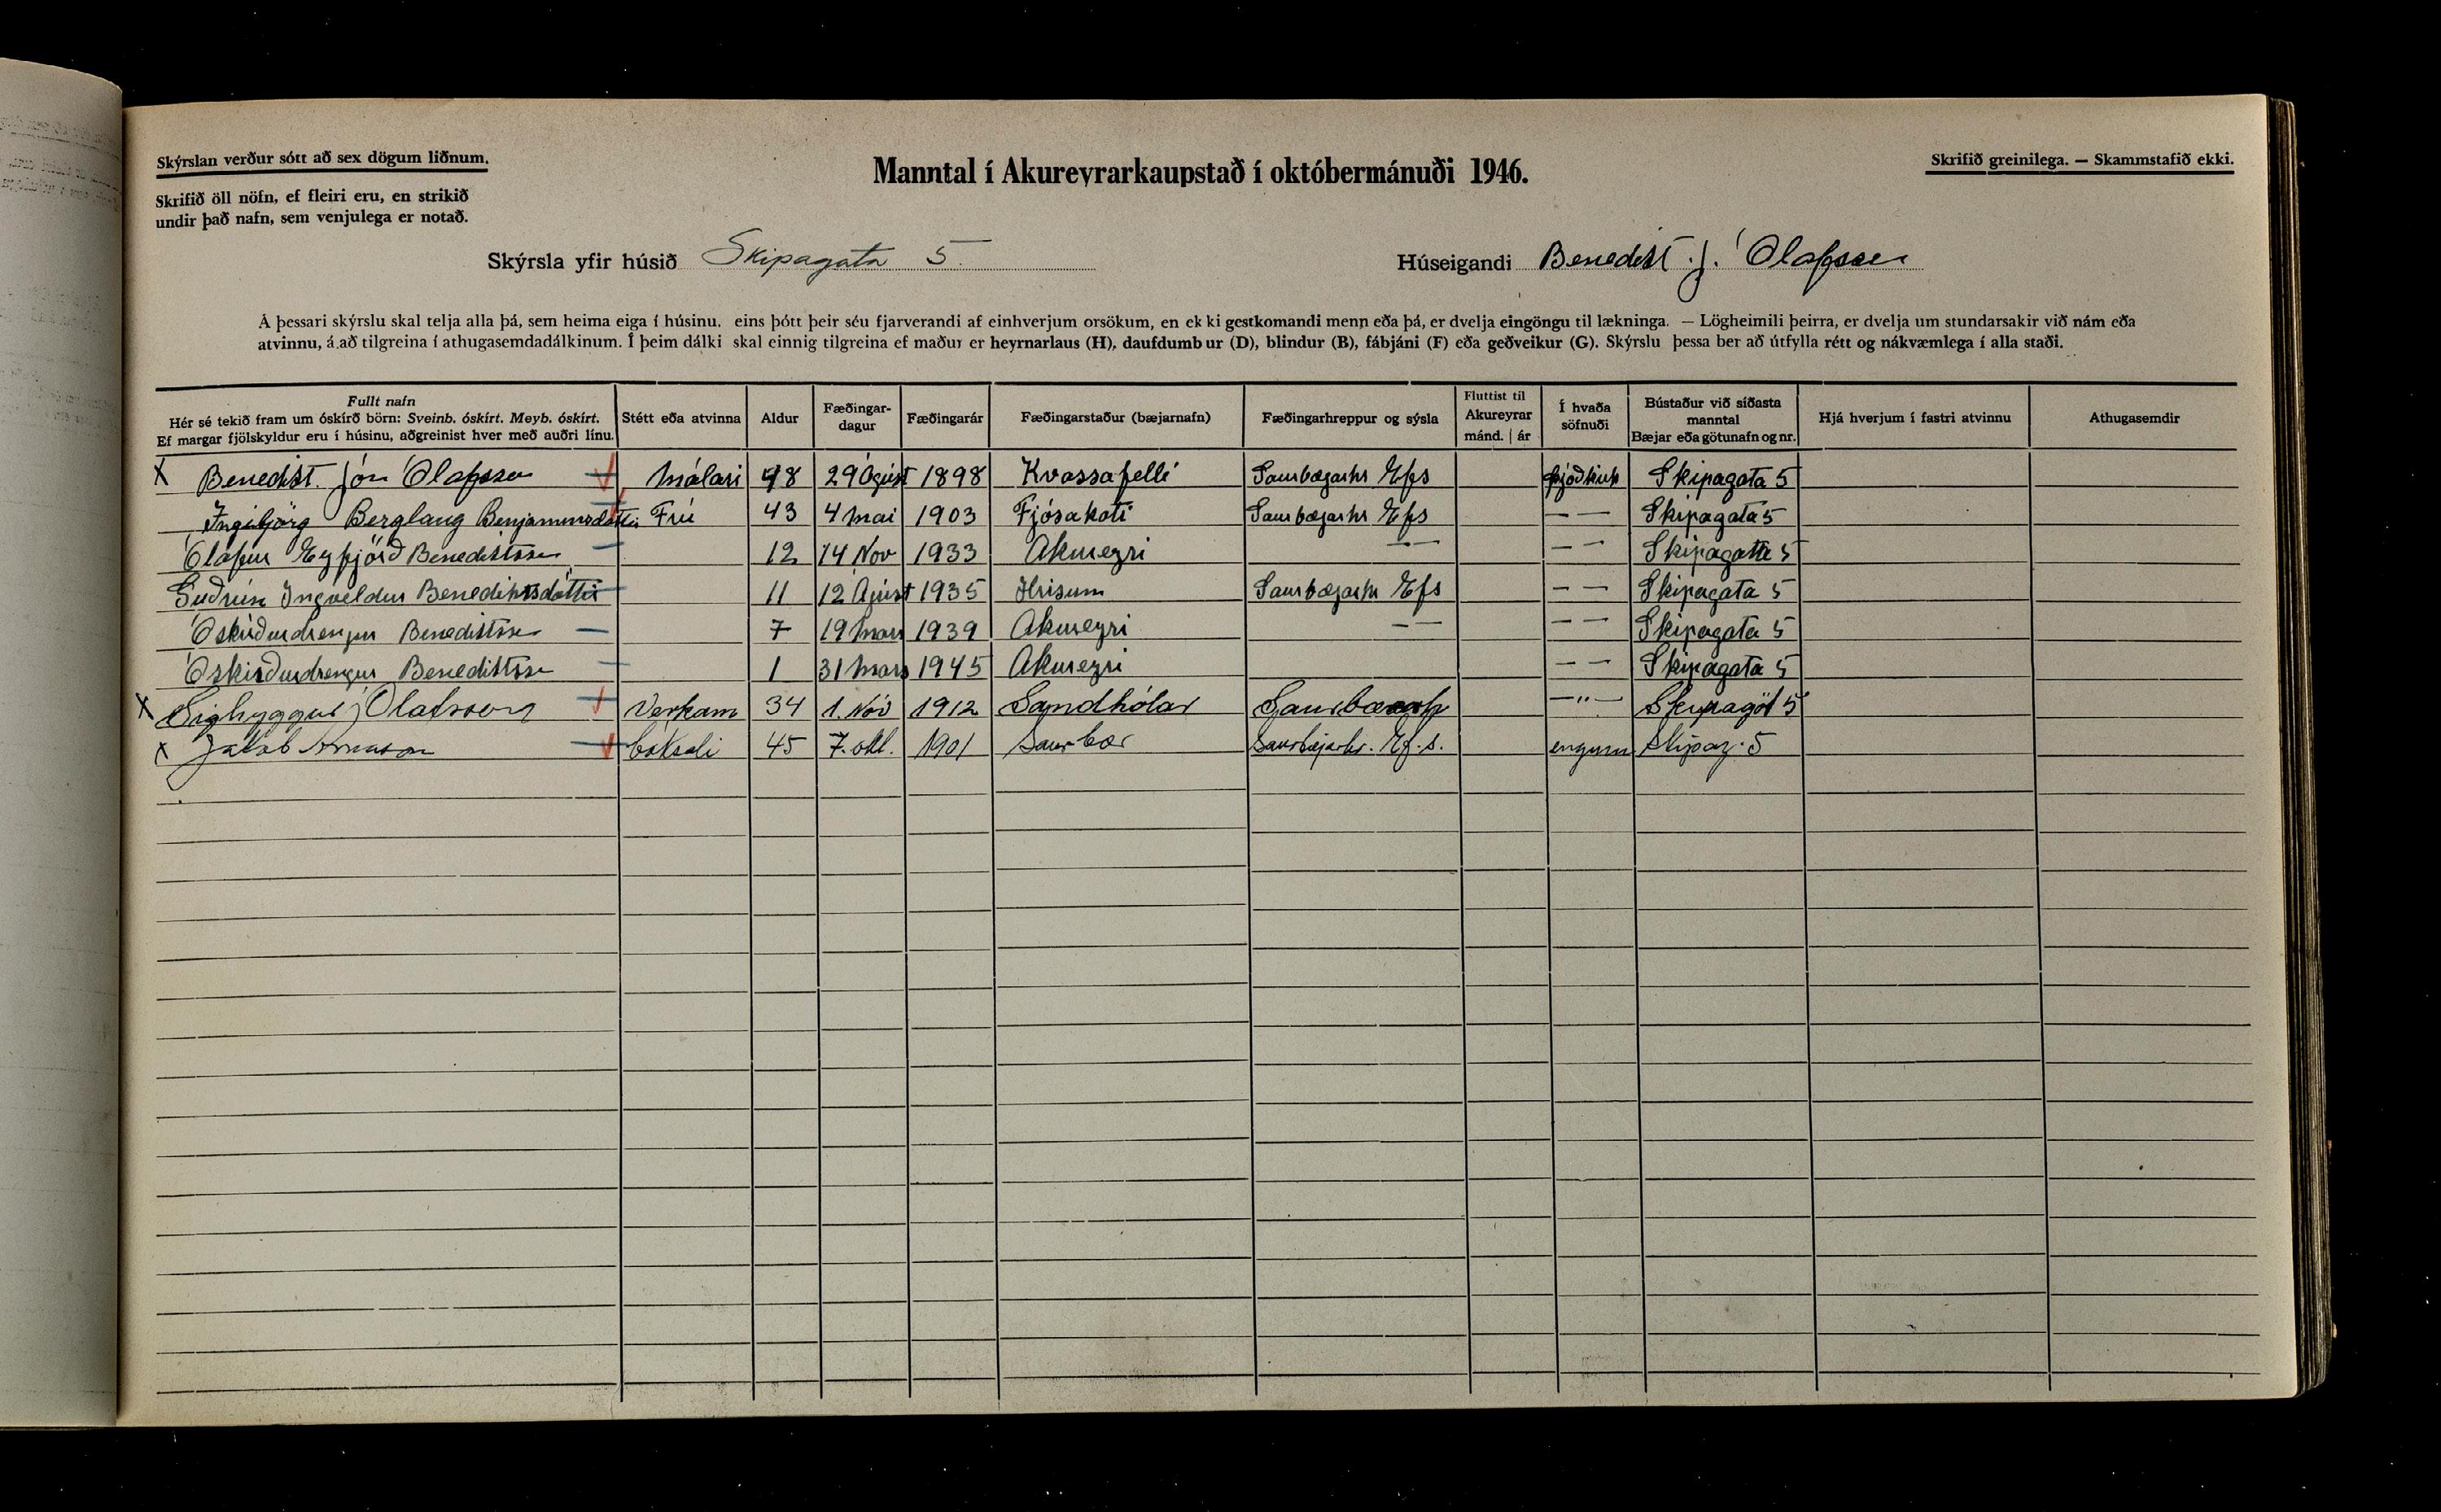 Skýrslan verður sótt að sex dögum liðnum.
Skrifið öll nöfn, ef fleiri eru, en strikið
undir það nafn, sem venjulega er notað.
Manntal í Akureyrarkaupstað í októbermánuði 1946.
Skrifið greinilega. — Skammstafið ekki.
Skýrsla yfir húsið Skipagata 5
Húseigandi Benedikt J. Ólafsson
Á þessari skýrslu skal telja alla þá, sem heima eiga í húsinu, eins þótt þeir séu fjarverandi af einhverjum orsökum, en ekki gestkomandi menn eða þá, er dvelja eingöngu til lækninga. — Lögheimili þeirra, er dvelja um stundarsakir við nám eða
atvinnu, á að tilgreina í athugasemdadálkinum. Í þeim dálki skal einnig tilgreina ef maður er heyrnarlaus (H), daufdumbur (D), blindur (B), fábjáni (F) eða geðveikur (G). Skýrslu þessa ber að útfylla rétt og nákvæmlega í alla staði.
Fullt nafn
Hér sé tekið fram um óskírð börn: Sveinb. óskírt. Meyb. óskírt.
Ef margar fjölskyldur eru í húsinu, aðgreinist hver með auðri línu.
Stétt eða atvinna
Aldur
Fæðingar-
dagur
Fæðingarár
Fæðingarstaður (bæjarnafn)
Fæðingarhreppur og sýsla
Fluttist til
Akureyrar
mánd. | ár
Í hvaða
söfnuði
Bústaður við síðasta
manntal
Bæjar eða götunafn og nr.
Hjá hverjum í fastri atvinnu
Athugasemdir
X Benedikt Jón Ólafsson Málari 48 29 Ágúst 1898 Kvassafelli Saurbæjarhr Efs Þjóðkirk Skipagata 5
Ingibjörg Berglaug Benjamínsdóttir Frú 43 4 maí 1903 Fjósakoti Saurbæjarhr Efs — — Skipagata 5
Ólafur Eyfjörð Benediktsson 12 14 Nóv 1933 Akureyri — — — — Skipagata 5
Guðrún Ingveldur Benediktsdóttir 11 12 Ágúst 1935 Hrísum Saurbæjarhr Efs — — Skipagata 5
Óskírðurdrengur Benediktsson 7 19 Mars 1939 Akureyri — — — — Skipagata 5
Óskírðurdrengur Benediktsson 1 31 Mars 1945 Akureyri — — Skipagata 5
X Sigtryggur J Ólafsson Verkam 34 1. Nóv 1912 Sandhólar —"— Skipagöt 5
X Jakob Árnason bóksali 45 7. okt. 1901 Saurbær Saurbæjarhr. Ef.s. engum Skipag. 5